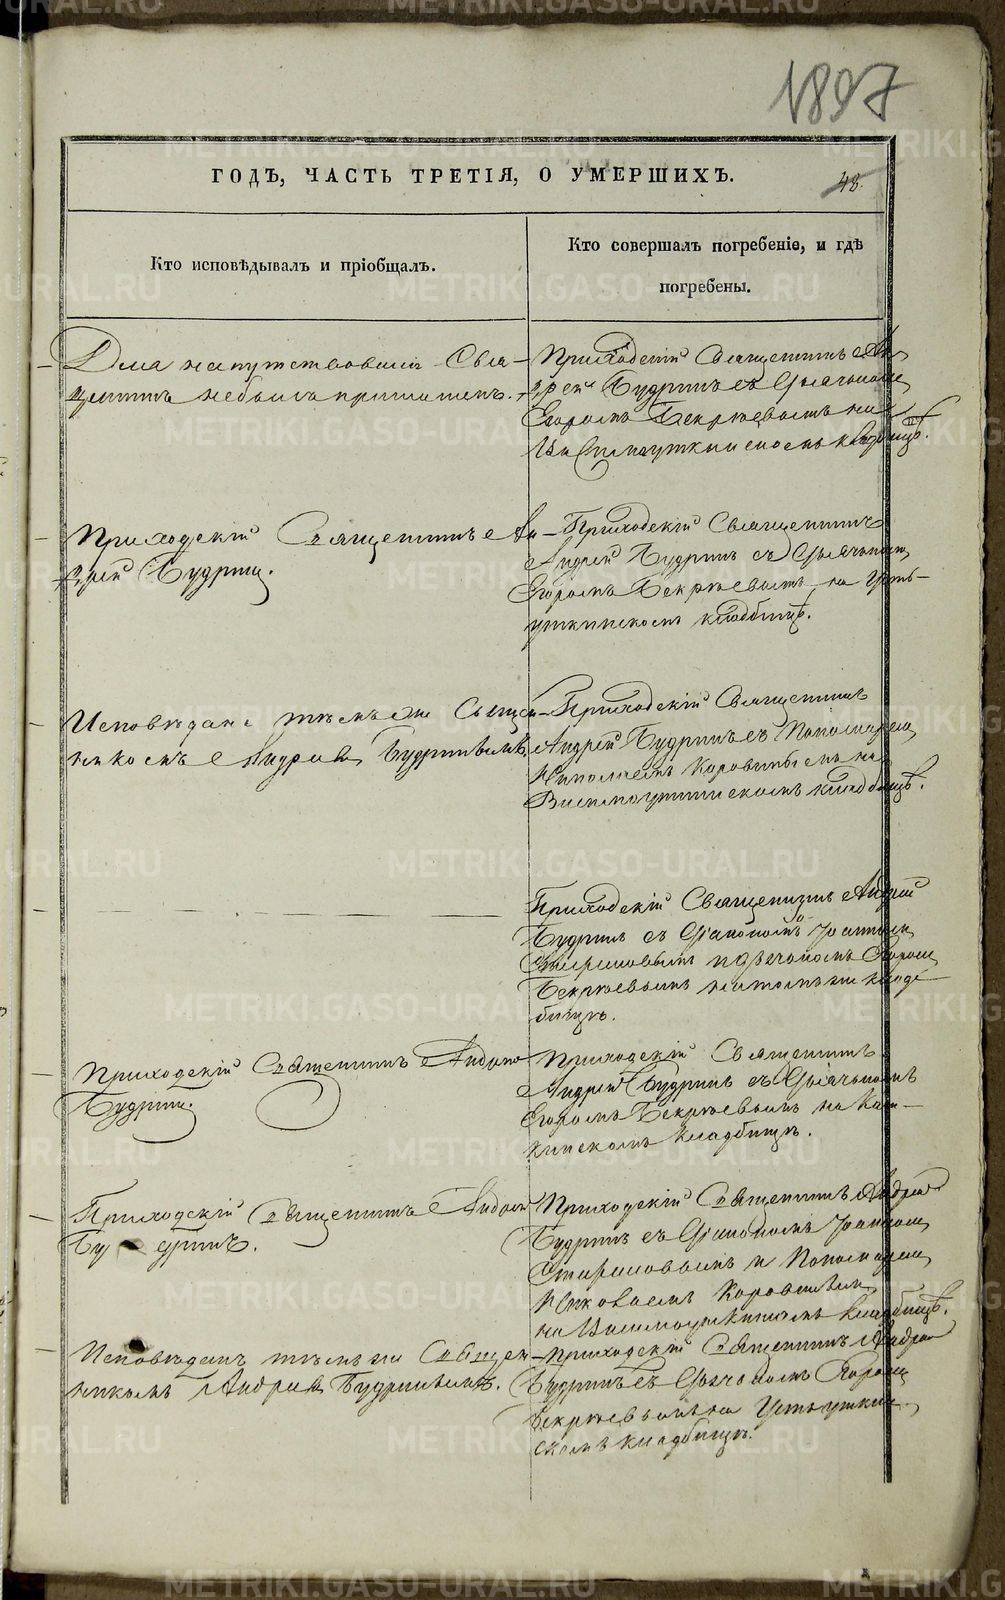 1897
ГОДѢ, ЧАСТЬ ТРЕТІЯ, О УМЕРШИХЪ.
48.
Кто исповѣдывалъ и пріобщалъ.
Кто совершалъ погребеніе, и гдѣ
погребены.
Для напутствованія Свя-
щенникъ небылъ приглашенъ.
Приходскій Священникъ Ан-
дрей Будринъ съ Дьячкомъ
Егоромъ
на
кладбищѣ.
Приходскій Священникъ Ан-
дрей Будринъ.
Приходскій Священникъ
Андрей Будринъ съ Дьячкомъ
Егоромъ на Усть-
уткинскомъ кладбищѣ.
Исповѣданъ тѣмъ же Священ-
никомъ Андреемъ Будринымъ
Приходскій Священникъ
Андрей Будринъ съ Пономаремъ
Николаемъ Коровинымъ на
Висимоуткинскомъ кладбищѣ.
Приходскій Священникъ Андрей
Будринъ съ Діакономъ Іоанномъ
и Дьячкомъ Егоромъ
на томъ же клад-
бищѣ.
Приходскій Священникъ Андрей
Будринъ.
Приходскій Священникъ
Андрей Будринъ съ Дьячкомъ
Егоромъ на
кладбищѣ.
Приходскій Священникъ Андрей
Будринъ.
Приходскій Священникъ Андрей
Будринъ съ Діакономъ Іоанномъ
и Пономаремъ
Николаемъ Коровинымъ
на Висимоуткинскомъ кладбищѣ.
Исповѣданъ тѣмъ же Священ-
никомъ Андреемъ Будринымъ.
Приходскій Священникъ Андрей
Будринъ съ Дьячкомъ Егоромъ
на Устьуткин-
скомъ кладбищѣ.
METRIKI.GASO-URAL.RU